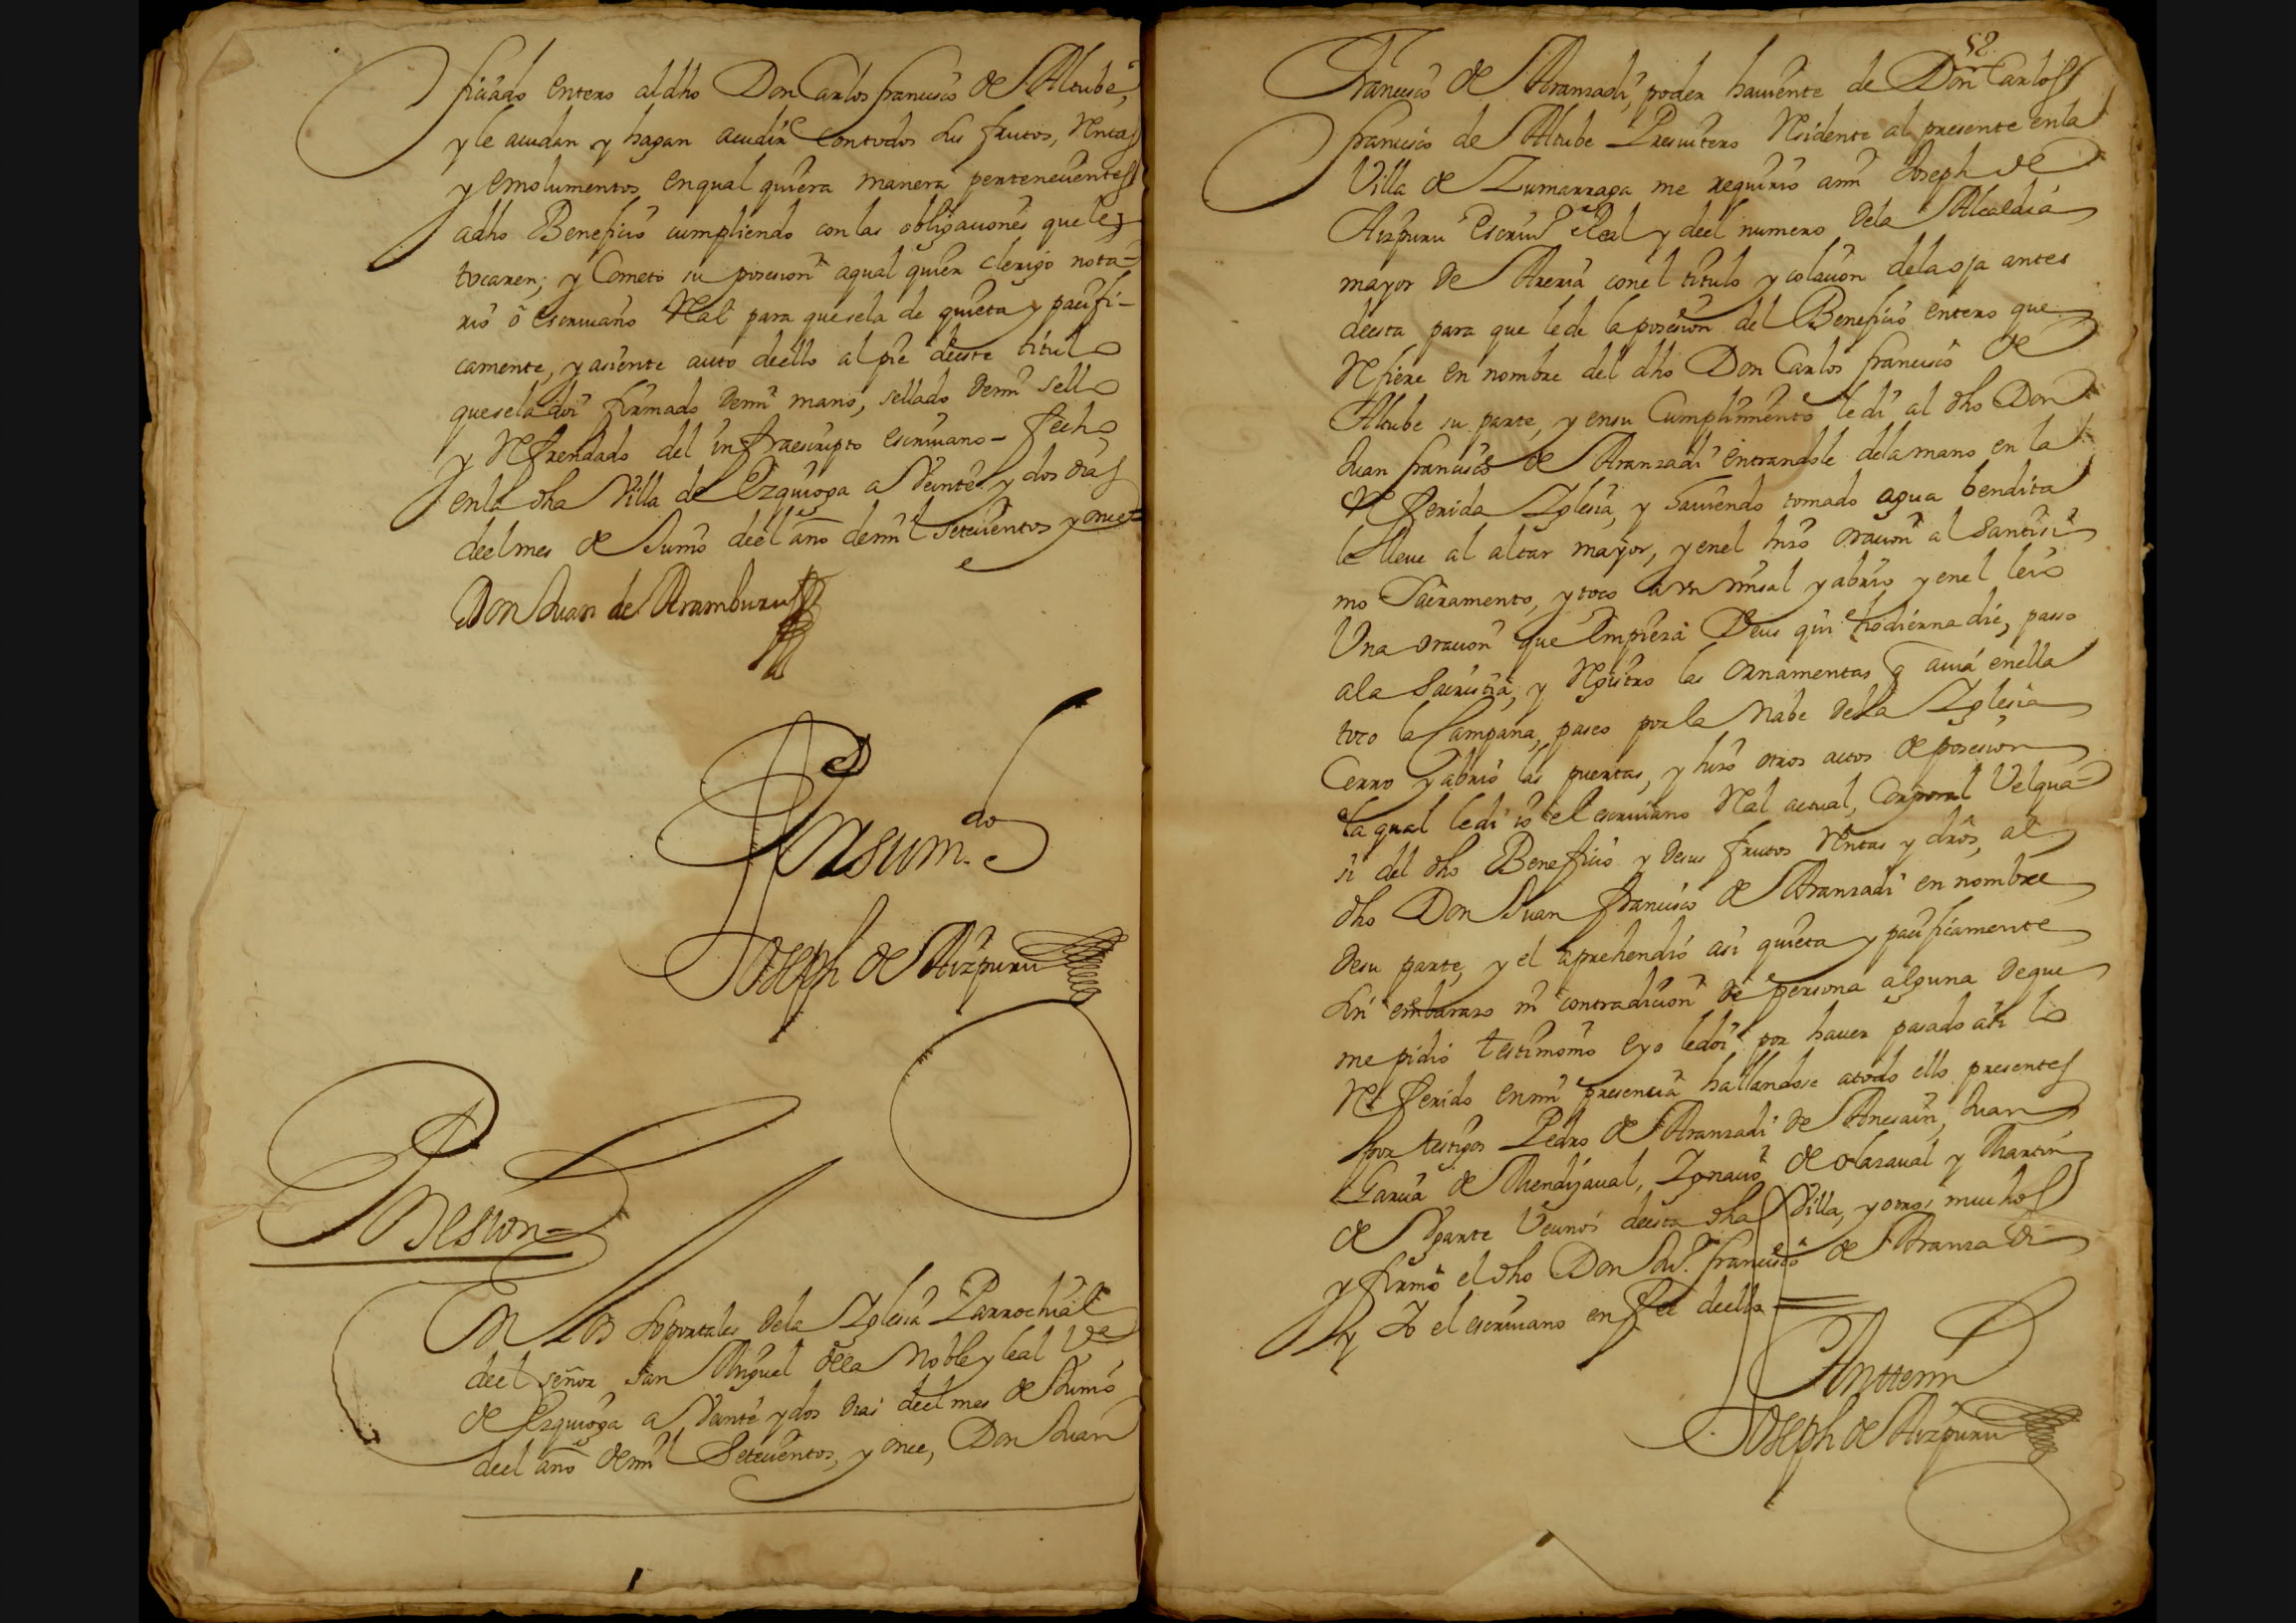 ficiado entero al dho Don Carlos francisco de Altube,
y le acudan y hagan acudir con todos sus frutos, Rentas
y emolumentos en qual quiera manera pertenecientes
a dho Beneficio cumpliendo con las obligaciones que le
tocaren; y Cometo su posesion a qual quier clerigo nota-
rio ô escriuano Real para que se la de quieta y pacifi-
camente, y asiente auto de ello al pie de este titulo
que se la doi firmado de mi mano, sellado de mi sello
y Refrendado del infraescripto escriuano - fecho
en la dha Villa de Ezquioga a Veinte y dos dias
de el mes de Junio de el año de mil setecientos y once=
Don Juan de Aramburu
Por su m.do
Joseph de Aizpuru
Posesion=
En Los soportales de la Iglesia Parrochial
de el señor san Miguel de la Noble y leal V.a
de Ezquioga a Veinte y dos dias de el mes de Junio
de el año de mil Setecientos, y once, Don Juan
52
Francisco de Aranzadi, poder hauiente de Don Carlos
francisco de Altube Presuitero Residente al presente en la
Villa de Zumarraga me requirio a mi Joseph de
Aizpuru Escriu.o Real y de el numero de la Alcaldia
mayor de Areria con el titulo y colacion de la oja antes
de esta para que le de la posesion del Beneficio entero que
Refiere en nombre del dho Don Carlos francisco de
Altube su parte, y en su Cumplimiento le di al dho Don
Juan francisco de Aranzadi entrandole de la mano en la
Referida Iglesia, y hauiendo tomado agua bendita
le lleve al altar mayor, y en el hizo oracion al Santisi
mo Sacramento, y toco un misal y abrio y en el leio
Una oracion que Empieza Deus qui hodierna die, passo
a la Sacristia, y Registro las Ornamentas q auia en ella
toco la Campana, paseo por la Nabe de la Iglesia
Cerro y abrio las puertas, y hizo otros actos de posesion
la qual le di io el escriuano Real actual, Corporal Vel qua-
si del dho Beneficio y de sus frutos Rentas y dros, al
dho Don Juan francisco de Aranzadi en nombre
de su parte, y el aprehendio asi quieta y pacificamente
sin embarazo ni contradicion de persona alguna de que
me pidio testimonio e yo le doi por hauer pasado asi lo
Referido en mi presencia hallandose a todo ello presentes
por testigos Pedro de Aranzadi de Anesain, Juan
Garcia de Mendizaual, Ignacio de olazaual y Martin
de Vgarte Vecinos de esta dha Villa, y otros muchos
y firmo el dho Don Ju.o francisco de Aranzadi
y Yo el escriuano en fee de ello =
Ante mi
Joseph de Aizpuru